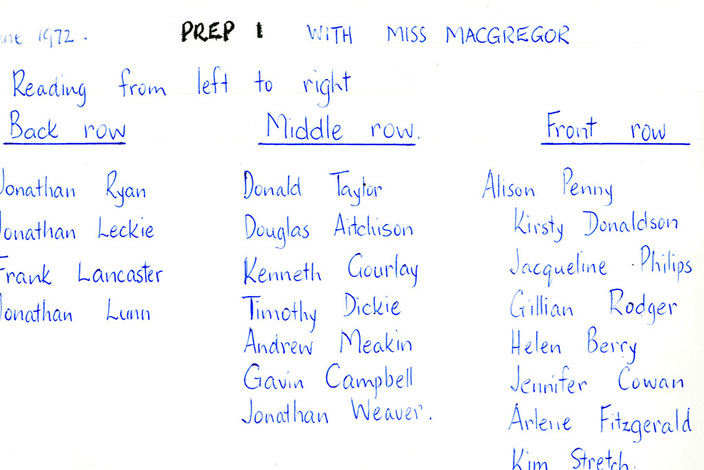 une 1972. PREP 1 WITH MISS MACGREGOR
Reading from left to right
Back row
Jonathan Ryan
Jonathan Leckie
Frank Lancaster
Jonathan Lunn
Middle row.
Donald Taylor
Douglas Aitchison
Kenneth Gourlay
Timothy Dickie
Andrew Meakin
Gavin Campbell
Jonathan Weaver.
Front row
Alison Penny
Kirsty Donaldson
Jacqueline Philips
Gillian Rodger
Helen Berry
Jennifer Cowan
Arlene Fitzgerald
Kim Stretch.